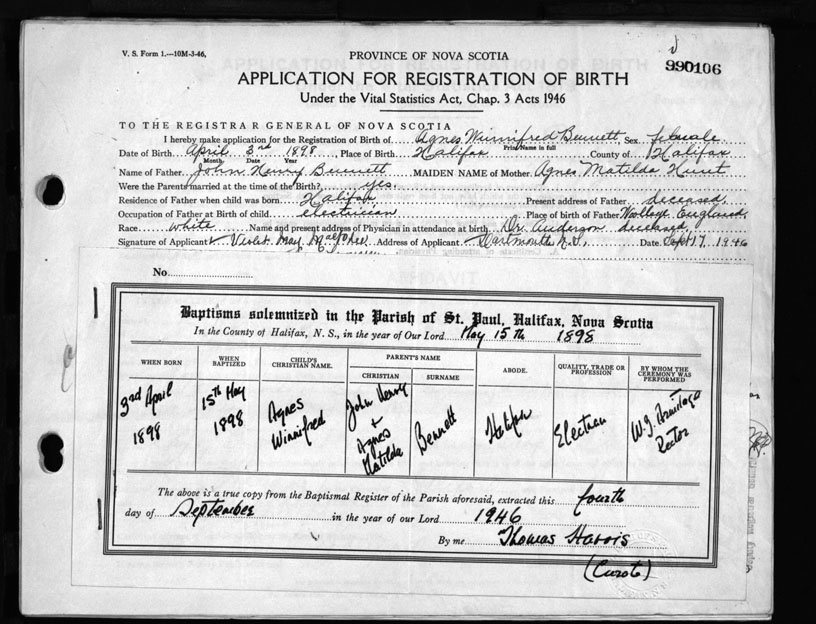 V. S. Form 1.—10M-3-46.
PROVINCE OF NOVA SCOTIA
990106
APPLICATION FOR REGISTRATION OF BIRTH
Under the Vital Statistics Act, Chap. 3 Acts 1946
TO THE REGISTRAR GENERAL OF NOVA SCOTIA
I hereby make application for the Registration of Birth of Agnes Winnifred Bennett, Sex female
Print Name in full
Date of Birth April 3rd 1898, Place of Birth Halifax County of Halifax
Month Date Year
Name of Father John Henry Bennett MAIDEN NAME of Mother Agnes Matilda
Were the Parents married at the time of the Birth? yes.
Residence of Father when child was born. Halifax Present address of Father deceased.
Occupation of Father at Birth of child. electrician Place of Birth of Father England.
Race white Name and present address of Physician in attendance at birth. Dr. Anderson deceased.
Signature of Applicant Violet May Address of Applicant Dartmouth N.S. Date Sept 17 1946
No.
Baptisms solemnized in the Parish of St. Paul, Halifax, Nova Scotia
In the County of Halifax, N. S., in the year of Our Lord May 15th 1898
WHEN BORN
WHEN BAPTIZED
CHILD'S CHRISTIAN NAME.
PARENT'S NAME
CHRISTIAN
SURNAME
ABODE.
QUALITY, TRADE OR PROFESSION
BY WHOM THE CEREMONY WAS PERFORMED
3rd April 1898
15th May 1898
Agnes Winnifred
John Henry + Agnes Matilda
Bennett
Halifax
W.J. Armitage Rector
The above is a true copy from the Baptismal Register of the Parish aforesaid, extracted this fourth
day of September in the year of our Lord 1946
By me Thomas Harris
(Curate)